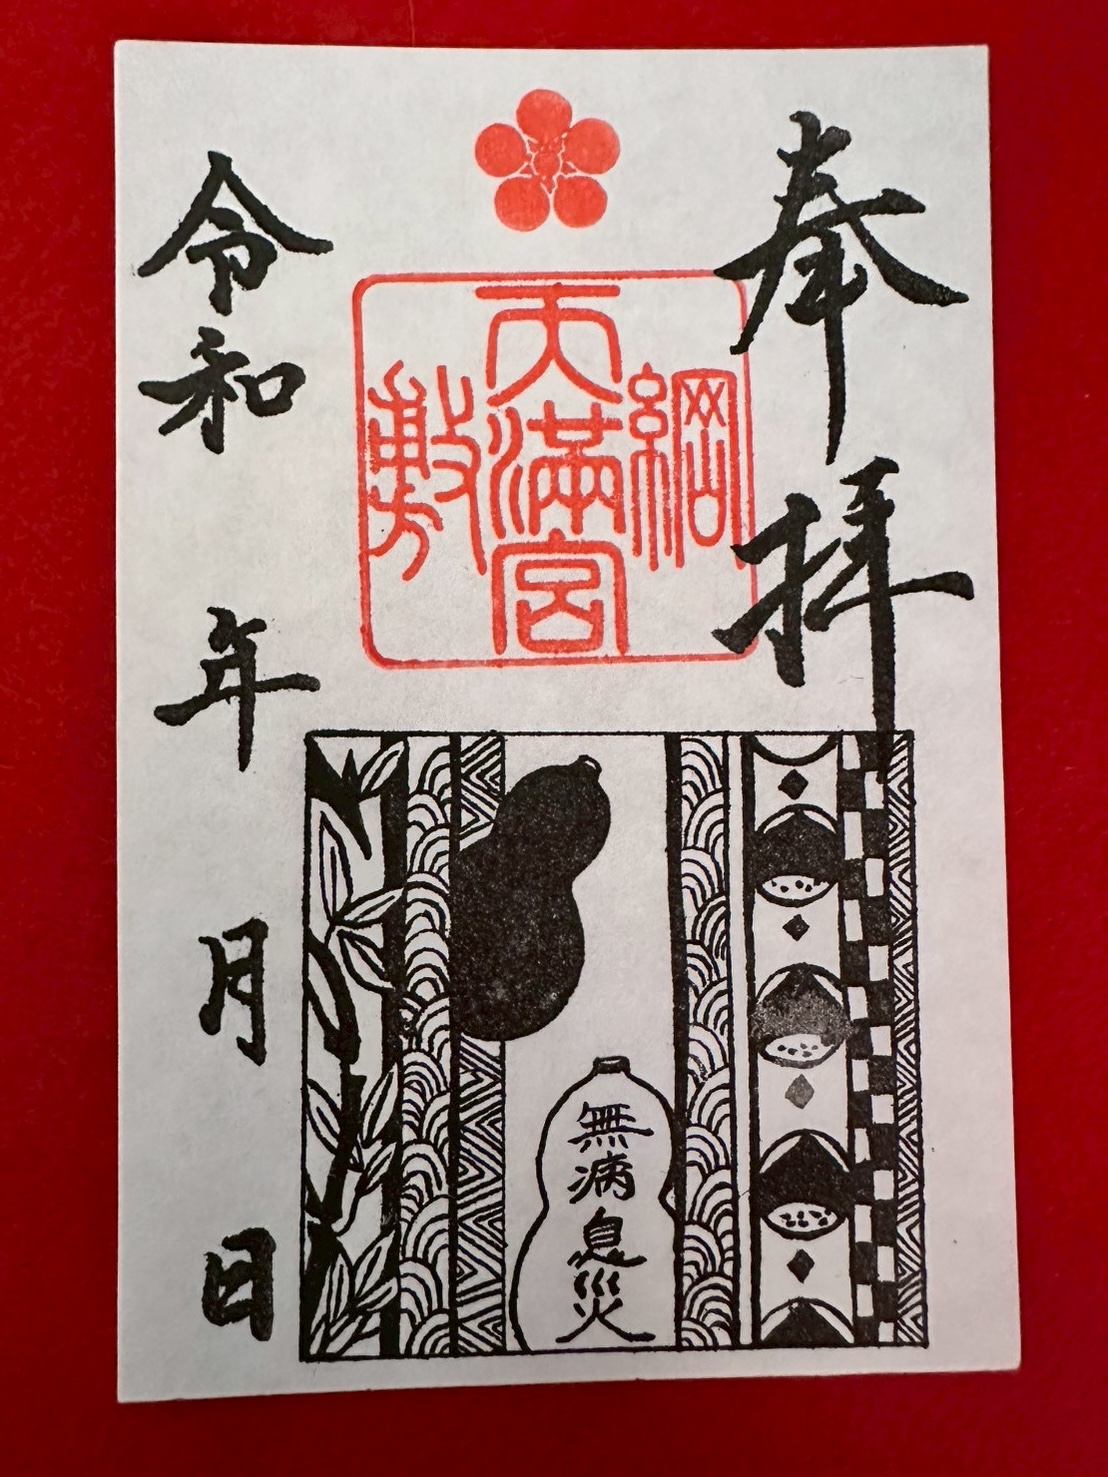 奉拝
綱敷
天満宮
無病息災
令和 年 月 日